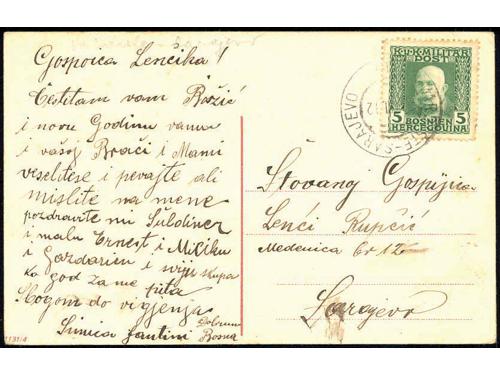 Gospoica Lenčika!
Čestitam vam Božić
i novu Godinu vama
i vašoj Braći i Mami
veselitese i pevajte ali
mislite na mene
pozdravite mi
i malu Ernest i
i i sviju skupa
ko god za me pita
Zbogom do vigjenja
Simica Fantini
Dobrun
Bosna
1131/4
K.u.K. MILITÄR
POST
5 5
BOSNIEN
HERCEGOVINA
SARAJEVO
Štovanoj Gospojica
Lenći Rupčić
Medenica br 12
Sarajevo